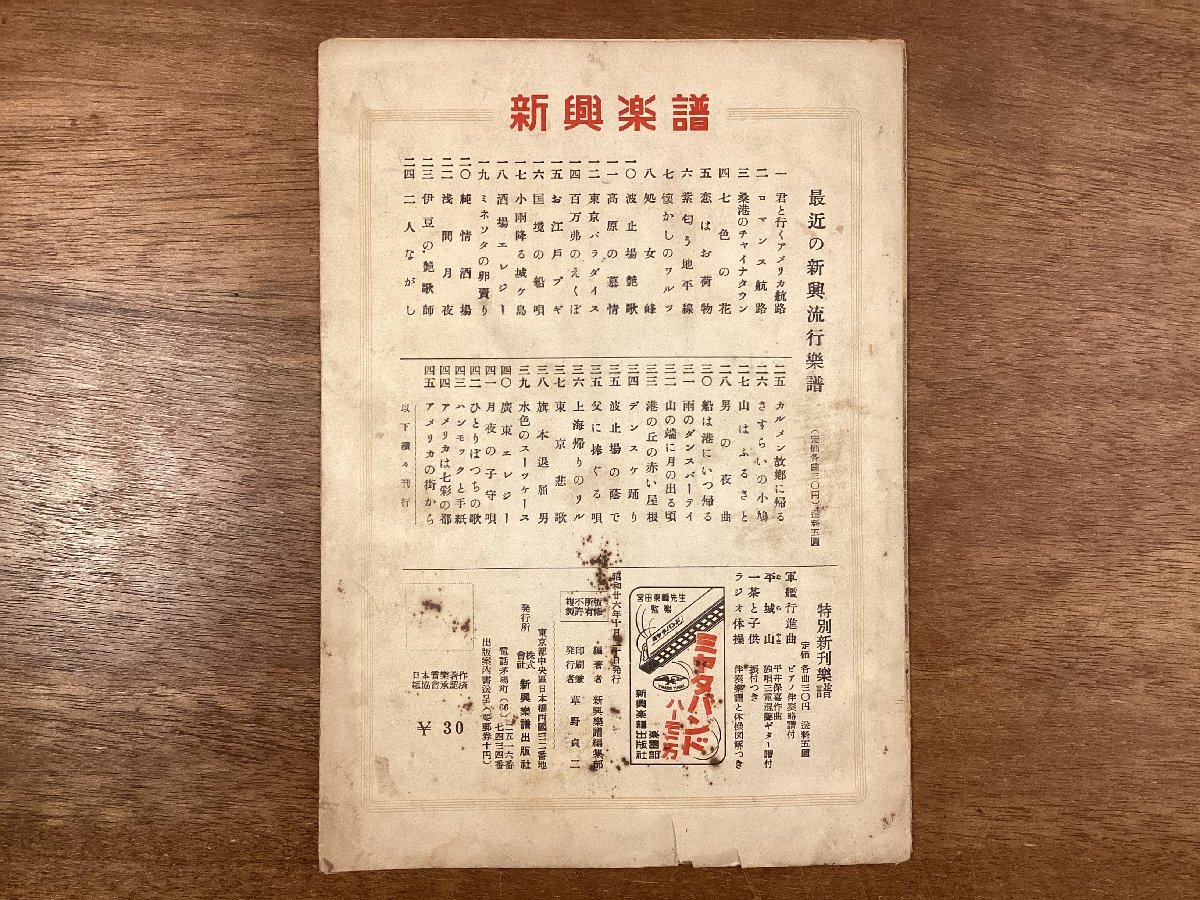 新興楽譜
最近の新興流行樂譜
（定価各曲三〇円）送料五圓
一 君と行くアメリカ航路
二 ロマンス航路
三 桑港のチャイナタウン
四 七色の花
五 恋はお荷物
六 紫匂う地平線
七 懐かしのワルツ
八 処女峰
一〇 波止場艶歌
一一 高原の慕情
一二 東京パラダイス
一四 百万弗のえくぼ
一五 お江戸ブギ
一六 国境の船唄
一七 小雨降る城ヶ島
一八 酒場エレジー
一九 ミネソタの卵賣り
二〇 純情酒場
二二 浅間月夜
二三 伊豆の艶歌師
二四 二人ながし
二五 カルメン故郷に帰る
二六 さすらいの小鳩
二七 山はふるさと
二八 男の夜曲
三〇 船は港にいつ帰る
三一 雨のダンスパーティ
三二 山の端に月の出る頃
三三 港の丘の赤い屋根
三四 デンスケ踊り
三五 波止場の蔭で
三五 父に捧ぐる唄
三六 上海帰りのリル
三七 東京悲歌
三八 旗本退屈男
三九 水色のスーツケース
四〇 廣東エレジー
四一 月夜の子守唄
四二 ひとりぼつちの歌
四三 ハンモックと手紙
四四 アメリカは七彩の都
四五 アメリカの街から
以下續々刊行
特別新刊樂譜
定価 各曲三〇円 送料五圓
軍艦行進曲 ピアノ伴奏略譜付
平城山 平井保喜作曲 独唱三重混聲ギター譜付
一茶と子供 振付つき
ラジオ体操 伴奏樂譜と体操図解つき
宮田東峰先生
監輯
ミヤタバンド
ミヤタバンド
ハーモニカ
TRADE MARK
新興楽譜出版社
楽器部
昭和廿六年十月 十日発行
版権所有
不許複製
編著者 新興樂譜編集部
印刷兼発行者 草野貞二
東京都中央區日本橋両國三二番地
発行所 株式會社 新興樂譜出版社
電話茅場町（66）二五一六番 七四三四番
出版案内書送呈（要郵券十円）
日本音楽著作
権協會承認済
￥30